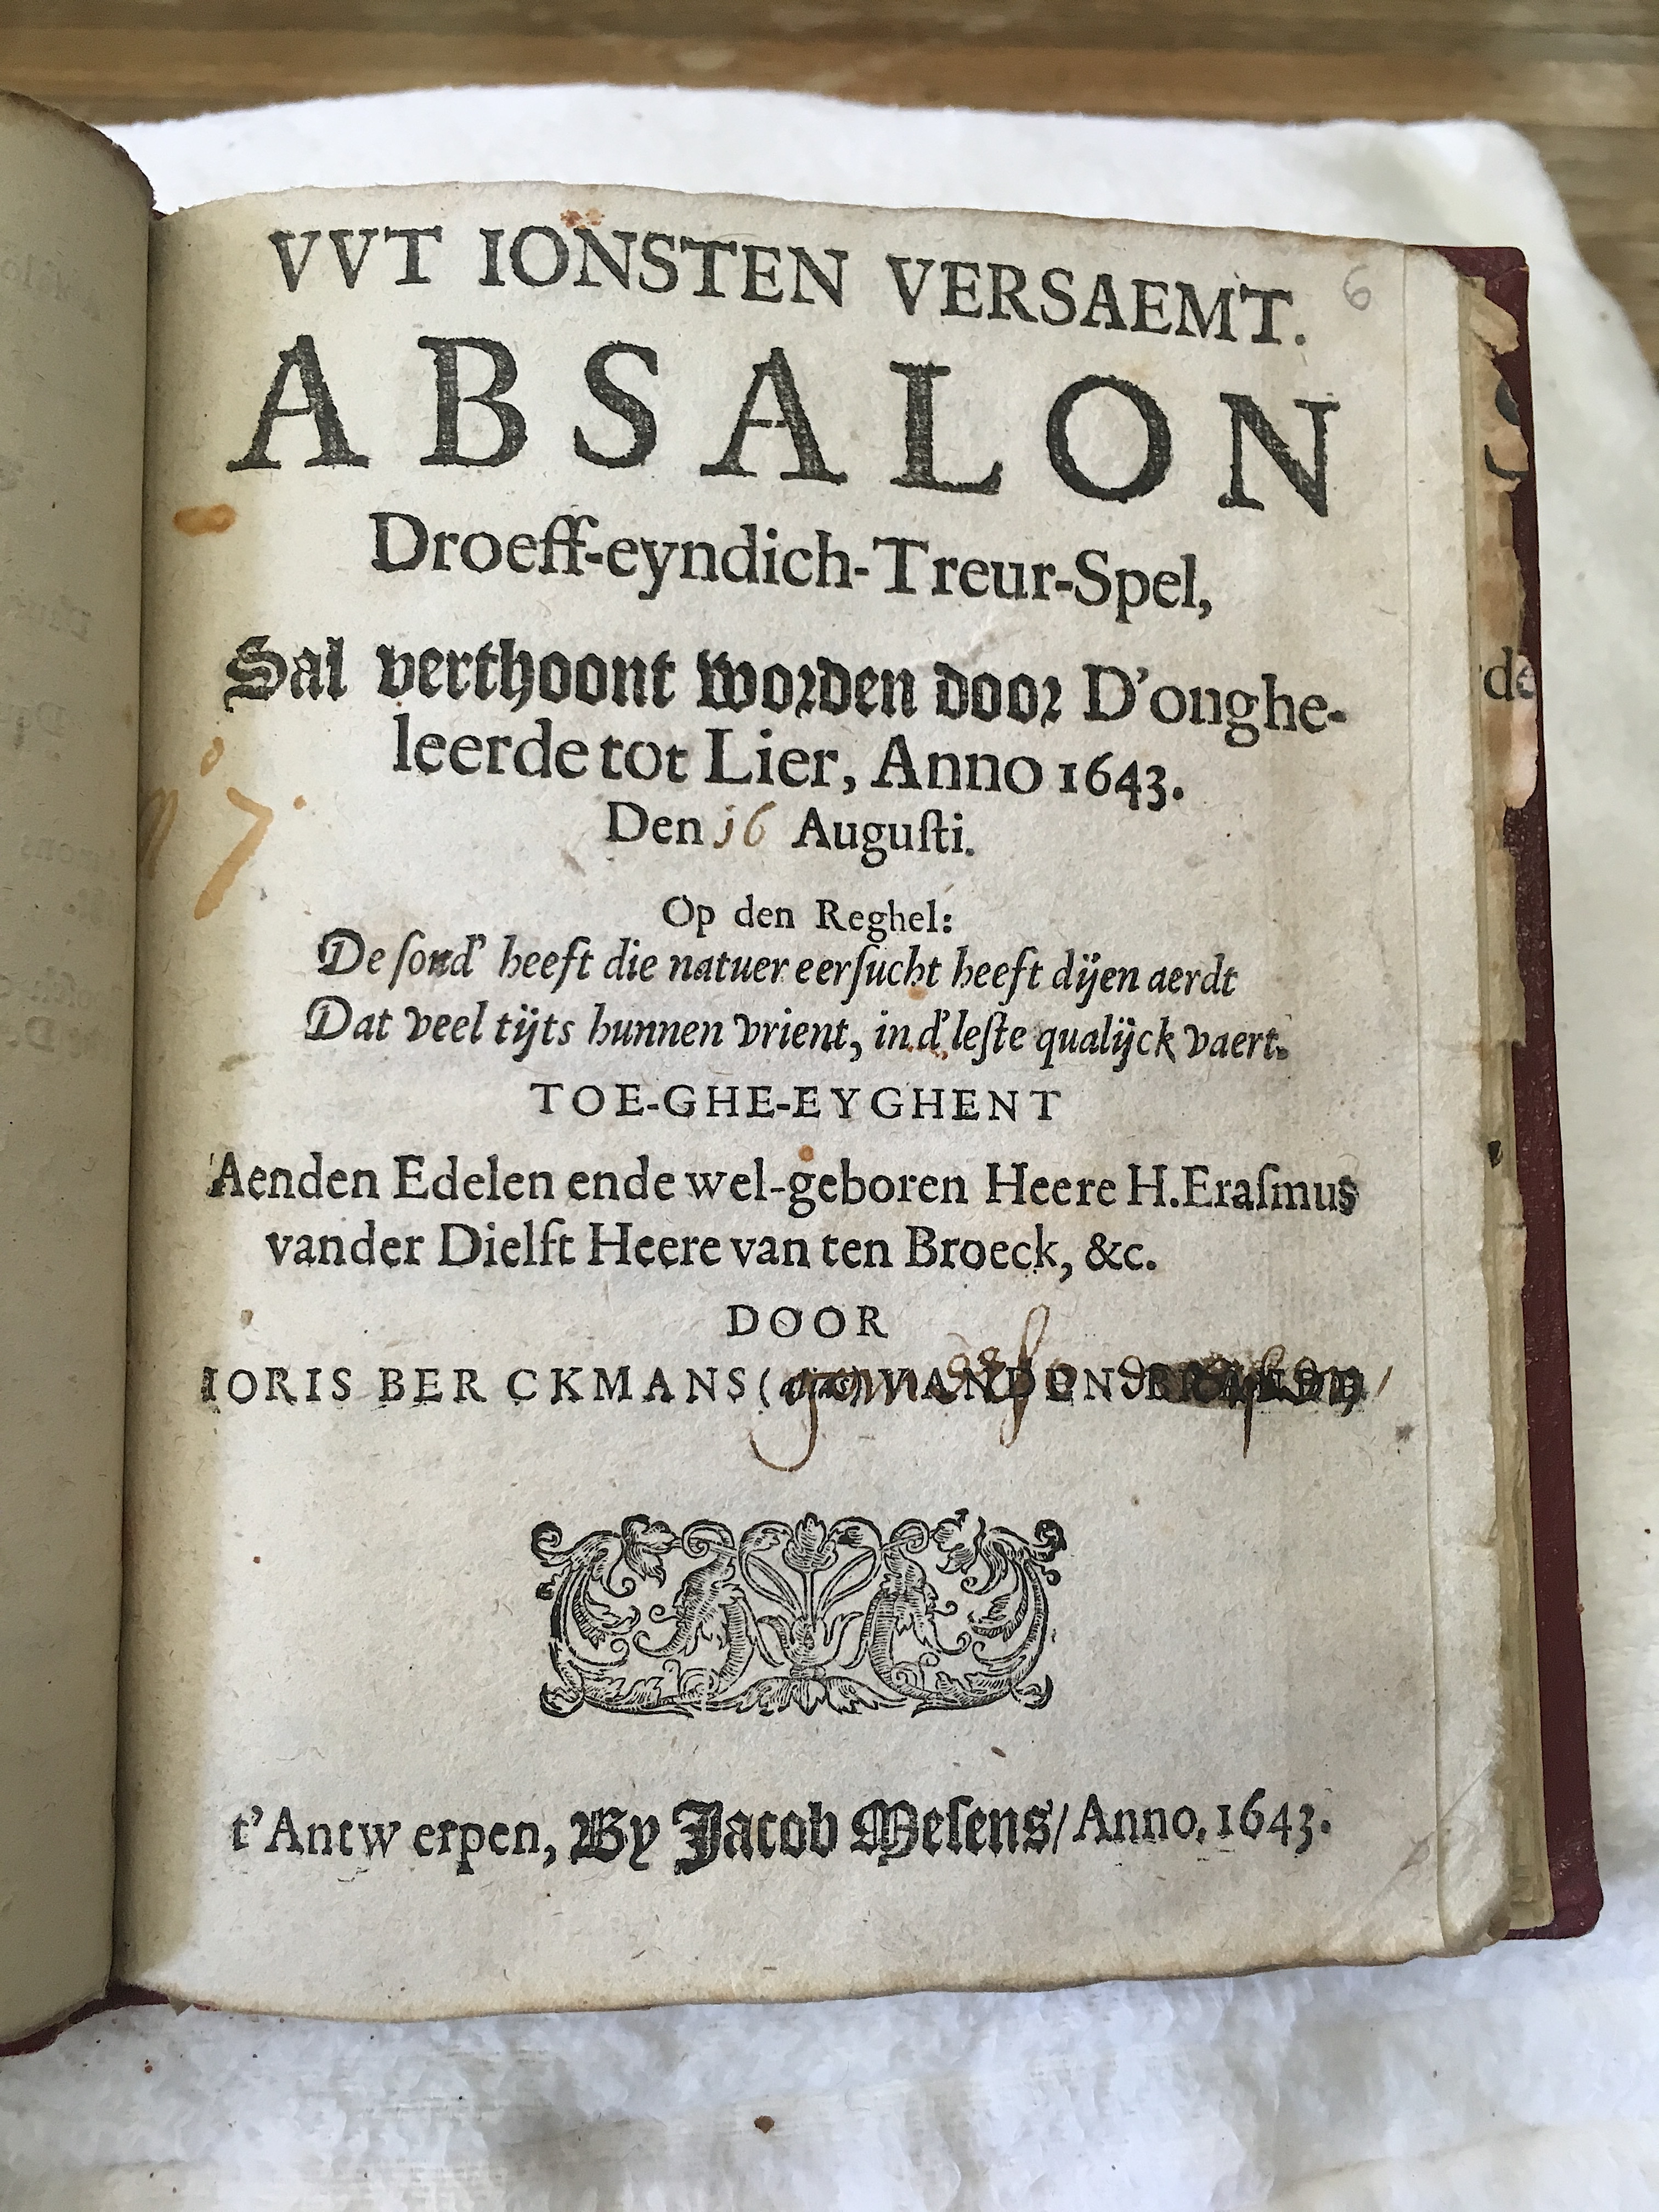 VVT IONSTEN VERSAEMT. 6
ABSALON
Droeff-eyndich-Treur-Spel,
Sal verthoont worden door D'onghe-
leerde tot Lier, Anno 1643.
Den 16 Augusti.
Op den Reghel:
De sond' heeft die natuer eersucht heeft dijen aerdt
Dat veel tijts hunnen vrient, in d'leste qualijck vaert.
TOE-GHE-EYGHENT
Aenden Edelen ende wel-geboren Heere H. Erasmus
vander Dielft Heere van ten Broeck, &c.
DOOR
IORIS BERCKMANS ( VANDEN
t'Antwerpen, By Jacob Mesens/ Anno. 1643.
de